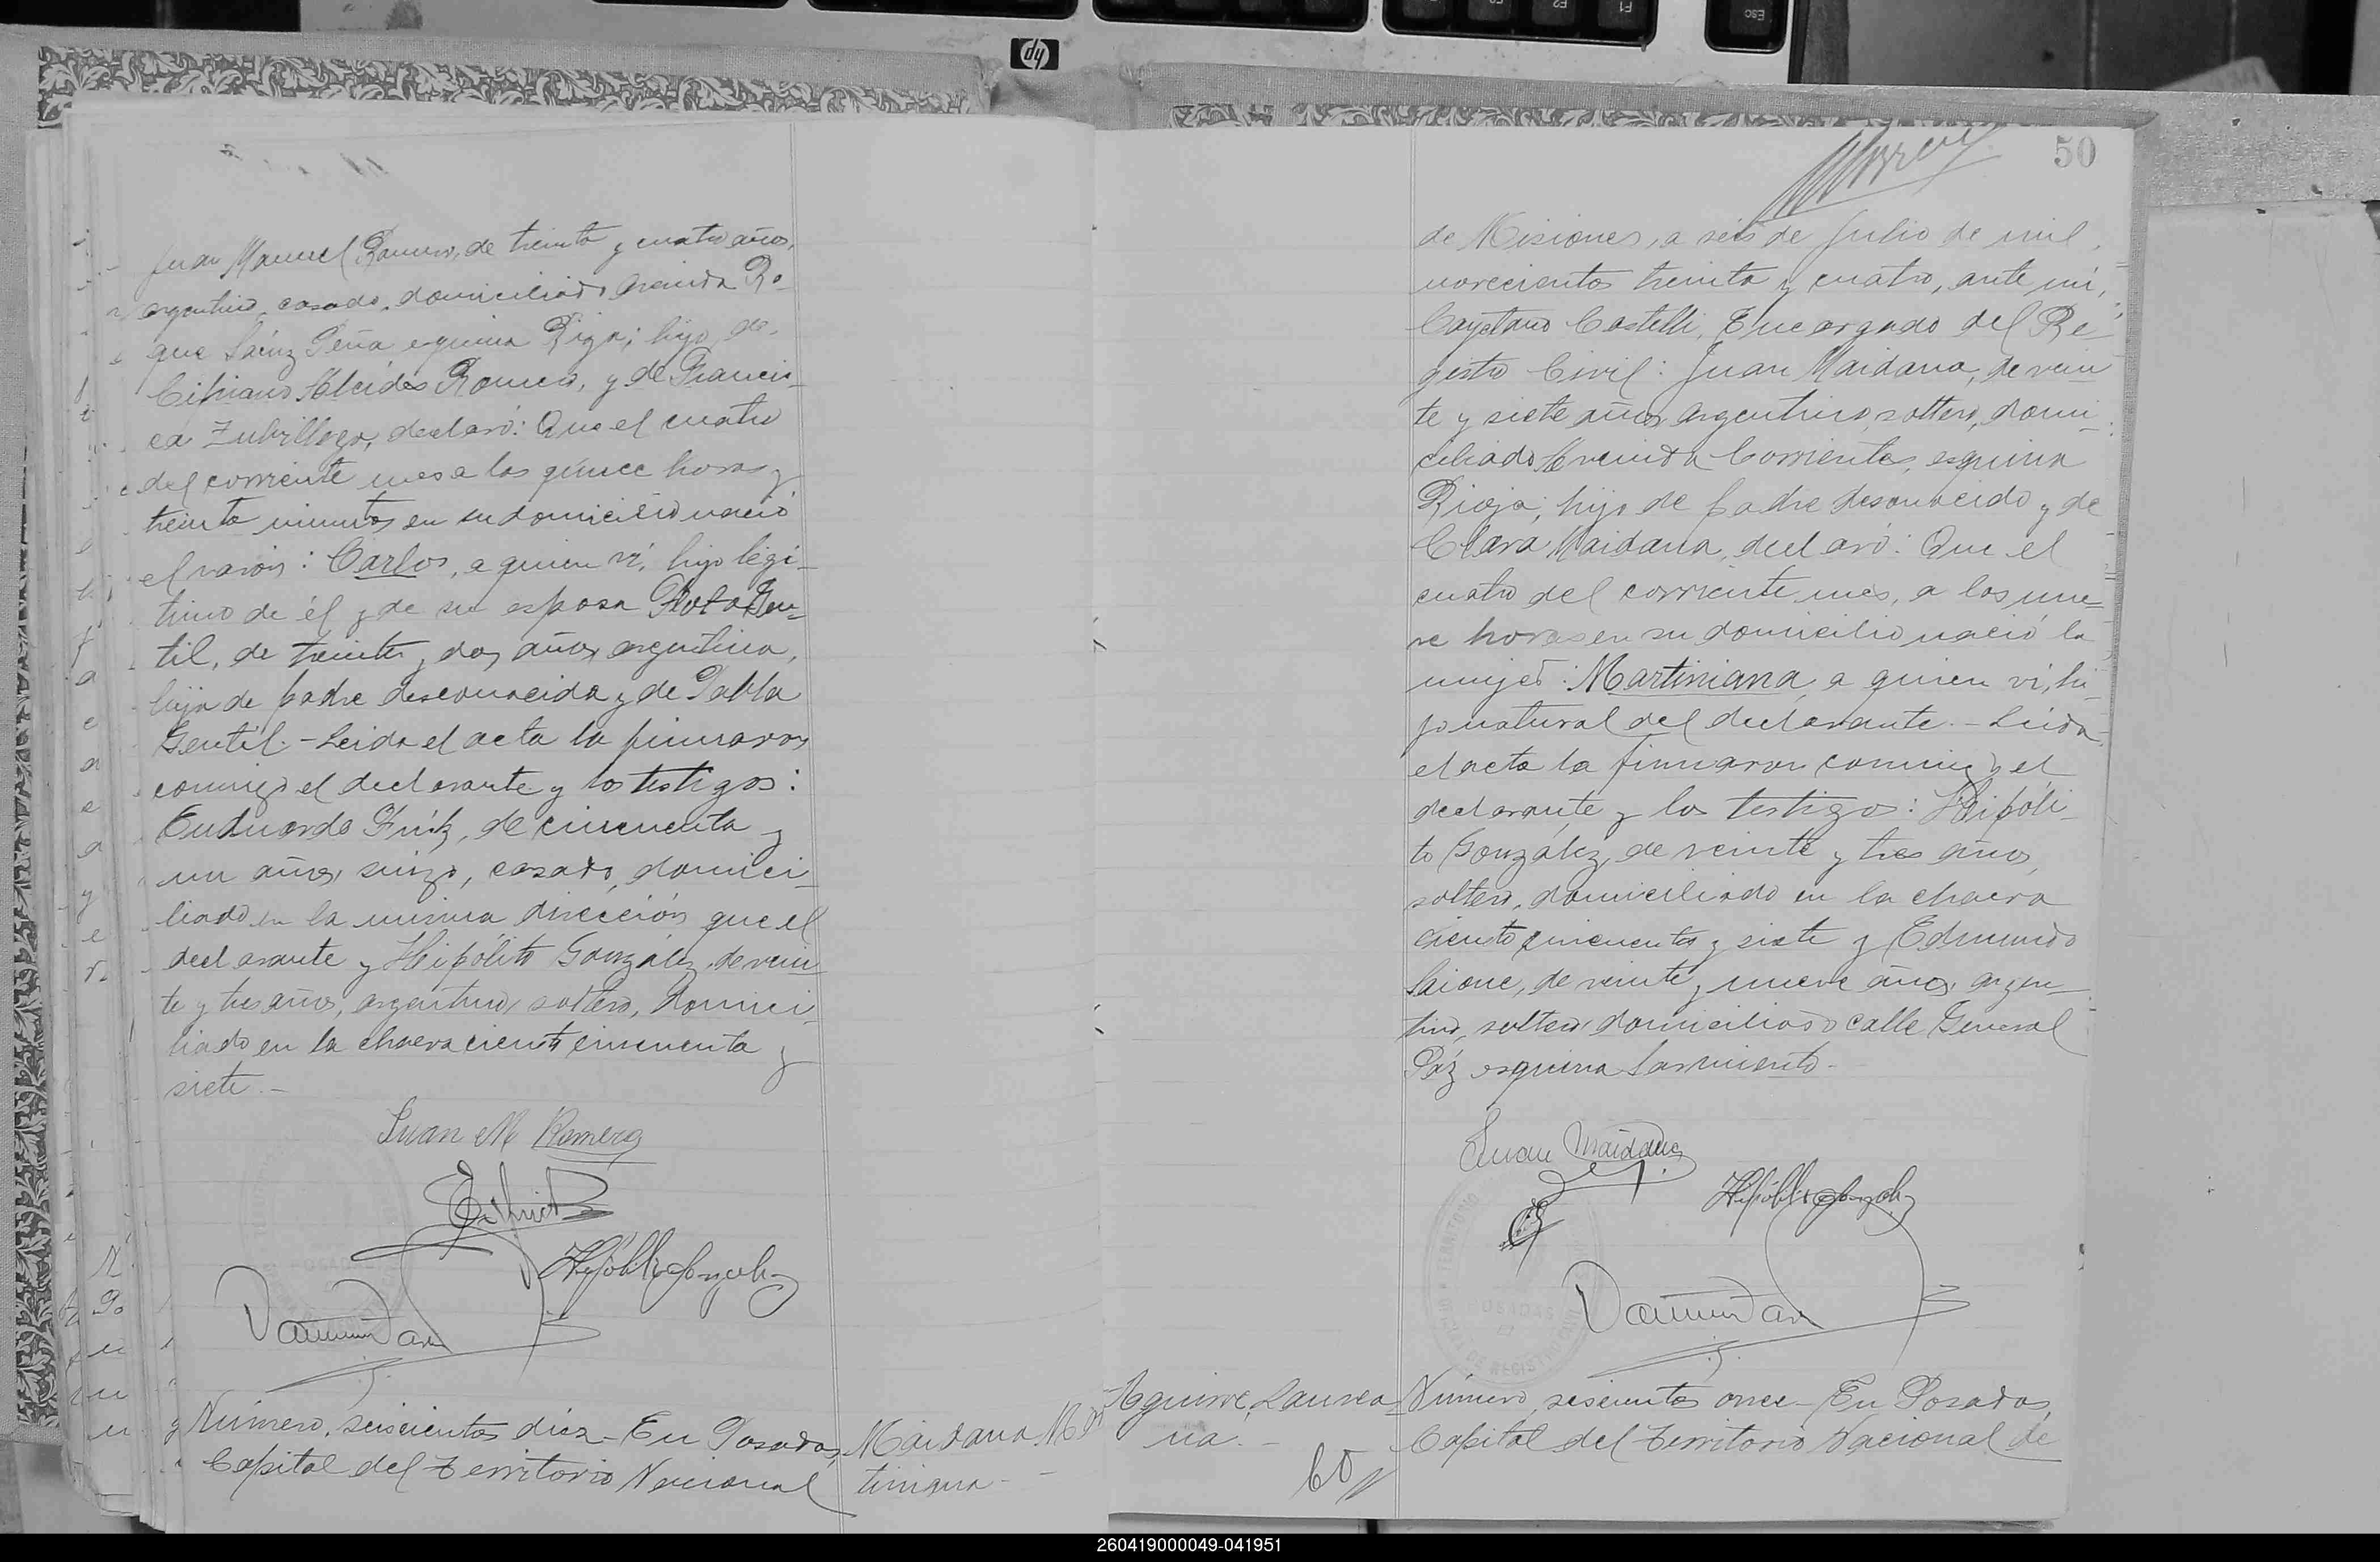 Juan Manuel Romero, de treinta y cuatro años,
argentino, casado, domiciliado Avenida Ro-
que Sáenz Peña esquina Rioja; hijo de
Cipriano Alcides Romero, y de Francis-
ca Zubillaga, declaró: Que el cuatro
del corriente mes a las quince horas y
treinta minutos en su domicilio nació
el varón: Carlos, a quien ví, hijo legí-
timo de él y de su esposa Gen-
til, de treinta y dos años, argentina,
hija de padre desconocido y de Pabla
Gentil.- Leida el acta la firmaron
conmigo el declarante y los testigos:
Eduardo de cincuenta y
un años, suizo, casado, domici-
liado en la misma dirección que el
declarante y Hipólito González, de vein-
te y tres años, argentino, soltero, domici-
liado en la chacra ciento cincuenta y
siete.-
Juan M Romero
Hipólito González
Número, seiscientos diez.- En Posadas,
Capital del Territorio Nacional
Maidana Mar
tiniana.-
50
de Misiones, a seis de Julio de mil
novecientos treinta y cuatro, ante mí,
Cayetano Castelli, Encargado del Re-
gistro Civil: Juan Maidana, de vein
te y siete años, argentino, soltero, domi-
ciliado Avenida Corrientes, esquina
Rioja; hijo de padre desconocido y de
Clara Maidana, declaró: Que el
cuatro del corriente mes, a las nue-
ve horas en su domicilio nació la
mujer: Martiniana, a quien ví, hi-
jo natural del declarante.- Leida
el acta la firmaron conmigo el
declarante y los testigos: Hipóli-
to González, de veinte y tres años,
soltero, domiciliado en la chacra
ciento cincuenta y siete y Edmundo
de veinte y nueve años, argen-
tino, soltero, domiciliado calle General
Páz esquina Sarmiento.-
Juan Maidana
Hipólito González
POSADAS
Aguirre, Laurea
na.-
Número, seiscientos once.- En Posadas,
Capital del Territorio Nacional de
hp
F1
F2
Esc
260419000049-041951